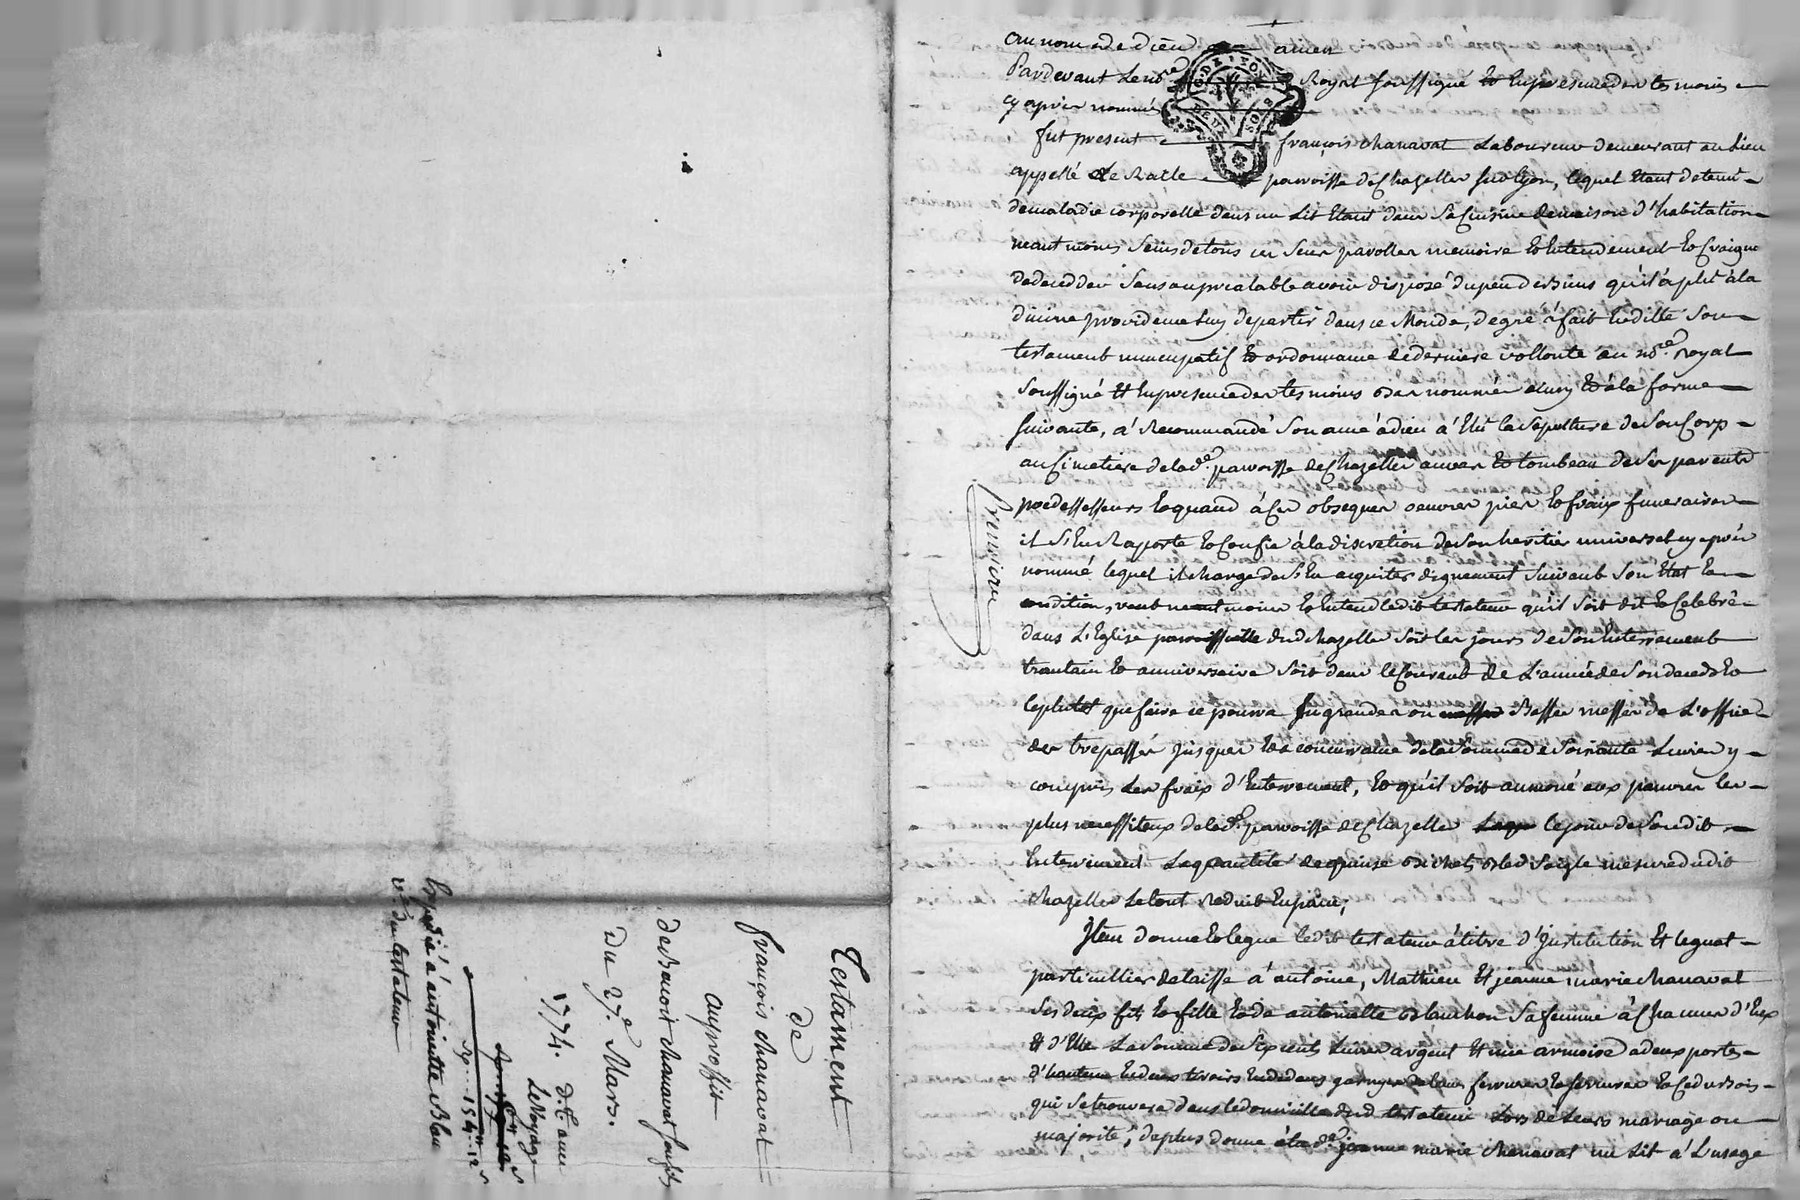 Au nom de Dieu amen
Pardevant le no.re Royal soussigné et En presence des tesmoins
cy apres nommés
fut present françois chanavat Laboureur demeurant au Lieu
appellé de paroisse de Chazelles sur Lyon, lequel Etant detenu
de maladie corporelle dans un Lit Etant dans Sa Cuisine de maison d'habitation
neant moins Sain de tous ces Sens parolles memoire et Entendement et Craignant
de deceder Sans au prealable avoir disposé du peu de biens qu'il a plut à la
divine providence luy departir dans ce Monde, de gré à fait et dicté Son
testament nuncupatif et ordonnance de derniere vollonté au no.re Royal
Soussigné Et En presence des tesmoins bas nommés ainsy et à la forme
Suivante, a Recommandé Son ame à dieu a Elu la Sepulture de Son Corp
au Cimetiere de lad.e paroisse de Chazelles au tombeau de Ses parents
predessesseurs et quand à Ces obseques oeuvres pies et fraix funeraires
il S'En Raporte et Confie à la discretion de Son heritier universel cy apres
nommé lequel il charge de S'En aquiter dignement Suivant Son Etat et
condition, veut neant moins et Entend ledit testateur qu'il Soit dit et Celebré
dans L'Eglise paroissialle dud Chazelles Soit les jours de Son Enterrement
trantain et anniversaire Soit dans le Courant de L'année de Son deceds et
le plutot que faire ce pourra En grandes ou Basses messes de L'office
des trepassés jusques à la concurrance de la Somme de Soixante Livres y
compris Les fraix d'Enterrement, et qu'il Soit aumoné aux pauvres les
plus necessiteux de lad.e paroisse de Chazelles le jour de Son dit
Enterrement La quantité de quinze bichets bled Seigle mesure dudit
Chazelles Le tout Reduit En pain;
Item donne et legue ledit testateur à titre d'Institution Et legat
particullier delaisse à antoine, Mathieu Et jeanne marie chanavat
Ses deux fils et fille et de antoinette blanchon Sa femme à Chacun d'Eux
Et d'Elle La Somme de Six cents Livres argent Et une armoire a deux portes
d'hauteur deux tiroirs En dedans garnye de Leurs ferrures et Serrures
qui Se trouvera dans le domicille dud testateur Lors de Leurs mariage ou
majorité, de plus donne à lad.e jeanne marie chanavat un Lit à L'usage
Testament
de
françois chanavat
au proffit
de Benoit chanavat son fils
Du 27.e Mars
1774.
Expedié à antoinette Blan
v.e du testateur